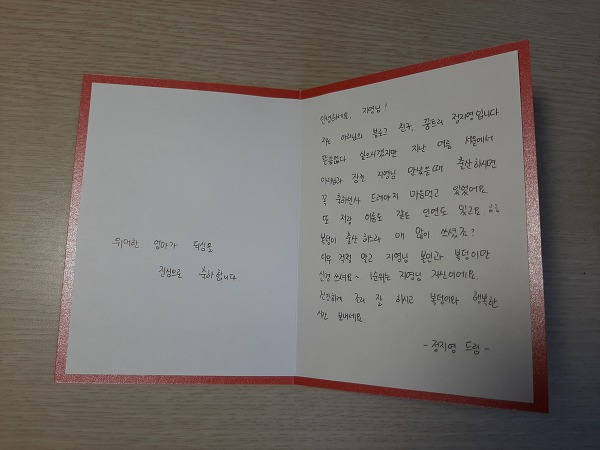 위대한 엄마가 되심을
진심으로 축하 합니다
안녕하세요, 지영님!
저는 아리님의 블로그 친구, 꿈트리 정지영입니다.
뜬금없다 싶으시겠지만 지난 여름 서울에서
아리님과 함께 지영님 만났을때 출산하시면
꼭 축하인사 드려야지 마음먹고 있었어요
또 저랑 이름도 같은 인연도 있고요 ㅎㅎ
복덩이 출산 하느라 애 많이 쓰셨죠?
아무 걱정 말고 지영님 본인과 복덩이만
신경 쓰세요~ 1순위는 지영님 자신이에요.
건강하게 조리 잘 하시고 복덩이와 행복한
시간 보내세요.
- 정지영 드림 -